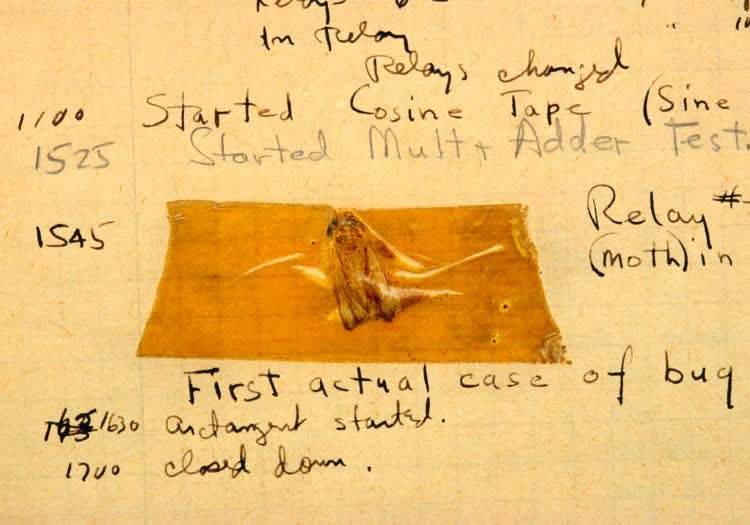 In Relay
Relays changed
1100 Started Cosine Tape (Sine
1525 Started Mult + Adder Test.
1545 Relay #
(moth) in
First actual case of bug
1630 arctangent started.
1700 closed down.